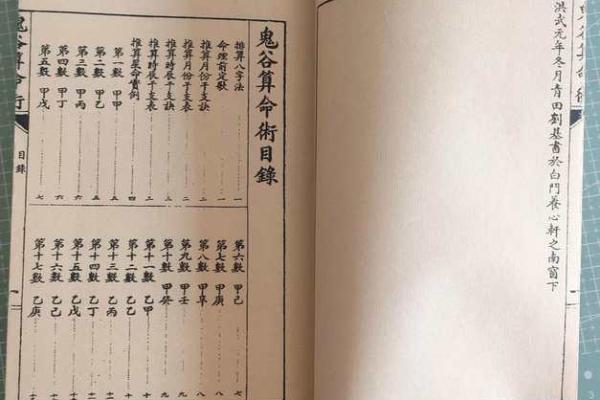 鬼谷算命術
洪武元年冬月青田劉基書於白門養心軒之南窗下
鬼谷算命術目錄
推算八字法 一
命理前定歌 一
推算月份干支訣
推算月份干支表
推算時辰干支訣
推算時辰干支表
推算星命實例 四
第一數 甲甲
第二數 甲乙
第三數 甲丙
第四數 甲丁 六
第五數 甲戊 七
第六數 甲己 七
第七數 甲庚
第八數 甲辛
第九數 甲壬
第十數 甲癸
第十一數 乙甲
第十二數 乙乙
第十三數 乙丙
第十四數 乙丁
第十五數 乙戊
第十六數 乙己
第十七數 乙庚
鬼谷算命術
目錄